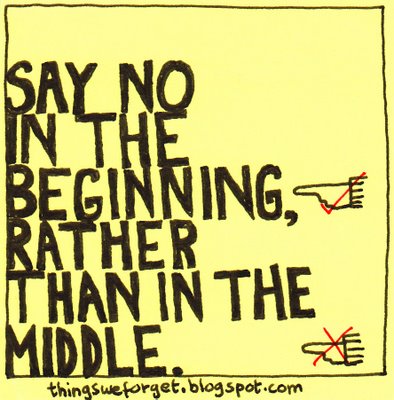 SAY NO
IN THE
BEGINNING,
RATHER
THAN IN THE
MIDDLE.
thingsweforget.blogspot.com